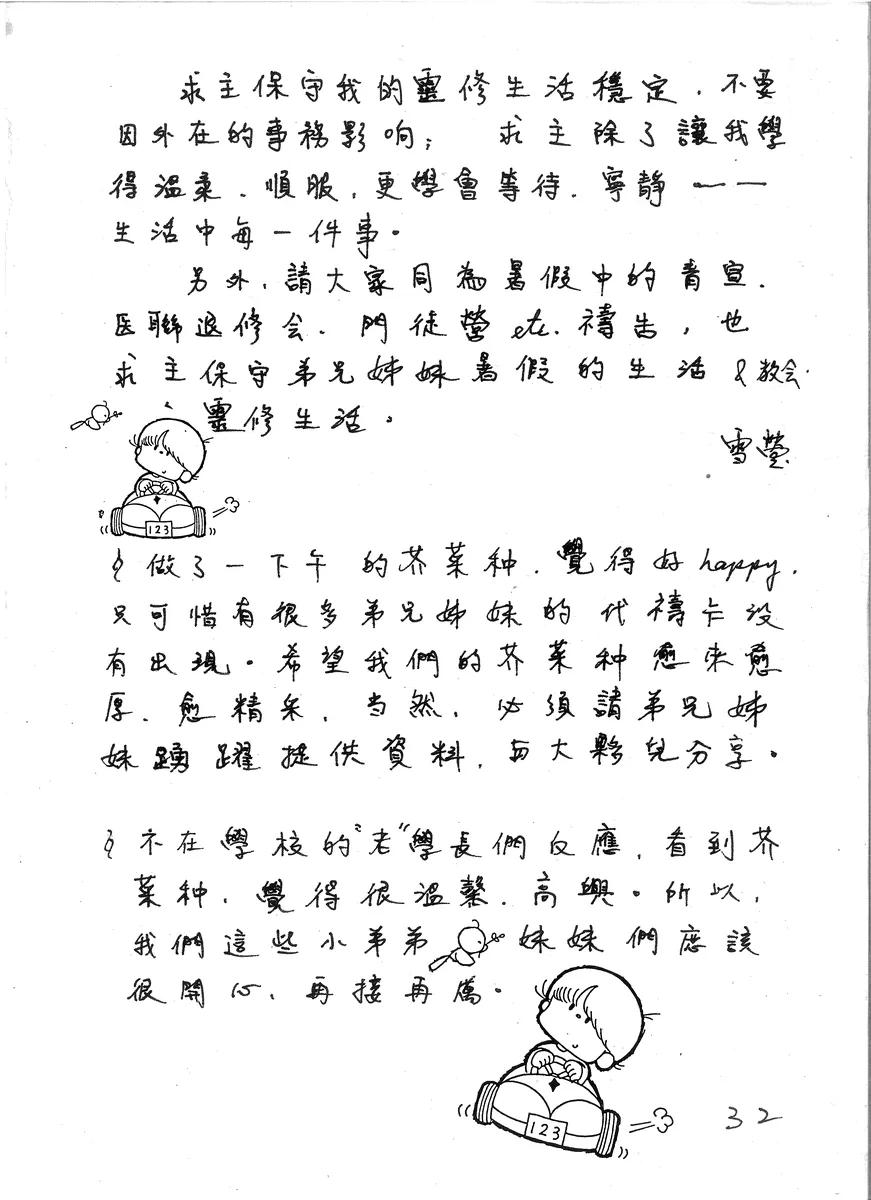 求主保守我的靈修生活穩定,不要
因外在的事務影响; 求主除了讓我學
得溫柔、順服,更學會等待、寧靜 ——
生活中每一件事。
另外,請大家同為暑假中的青宣、
医聯退修会、門徒營etc.禱告,也
求主保守弟兄姊妹暑假的生活&教会、
靈修生活。
雪瑩
123
做了一下午的芥菜种,覺得好happy,
只可惜有很多弟兄姊妹的代禱卡没
有出現。希望我們的芥菜种愈來愈
厚、愈精采,当然,必須請弟兄姊
妹踴躍提供資料,與大夥兒分享。
不在學校的"老"學長們反應,看到芥
菜种,覺得很溫馨、高興。所以,
我們這些小弟弟 妹妹們應該
很開心,再接再厲。
123
32